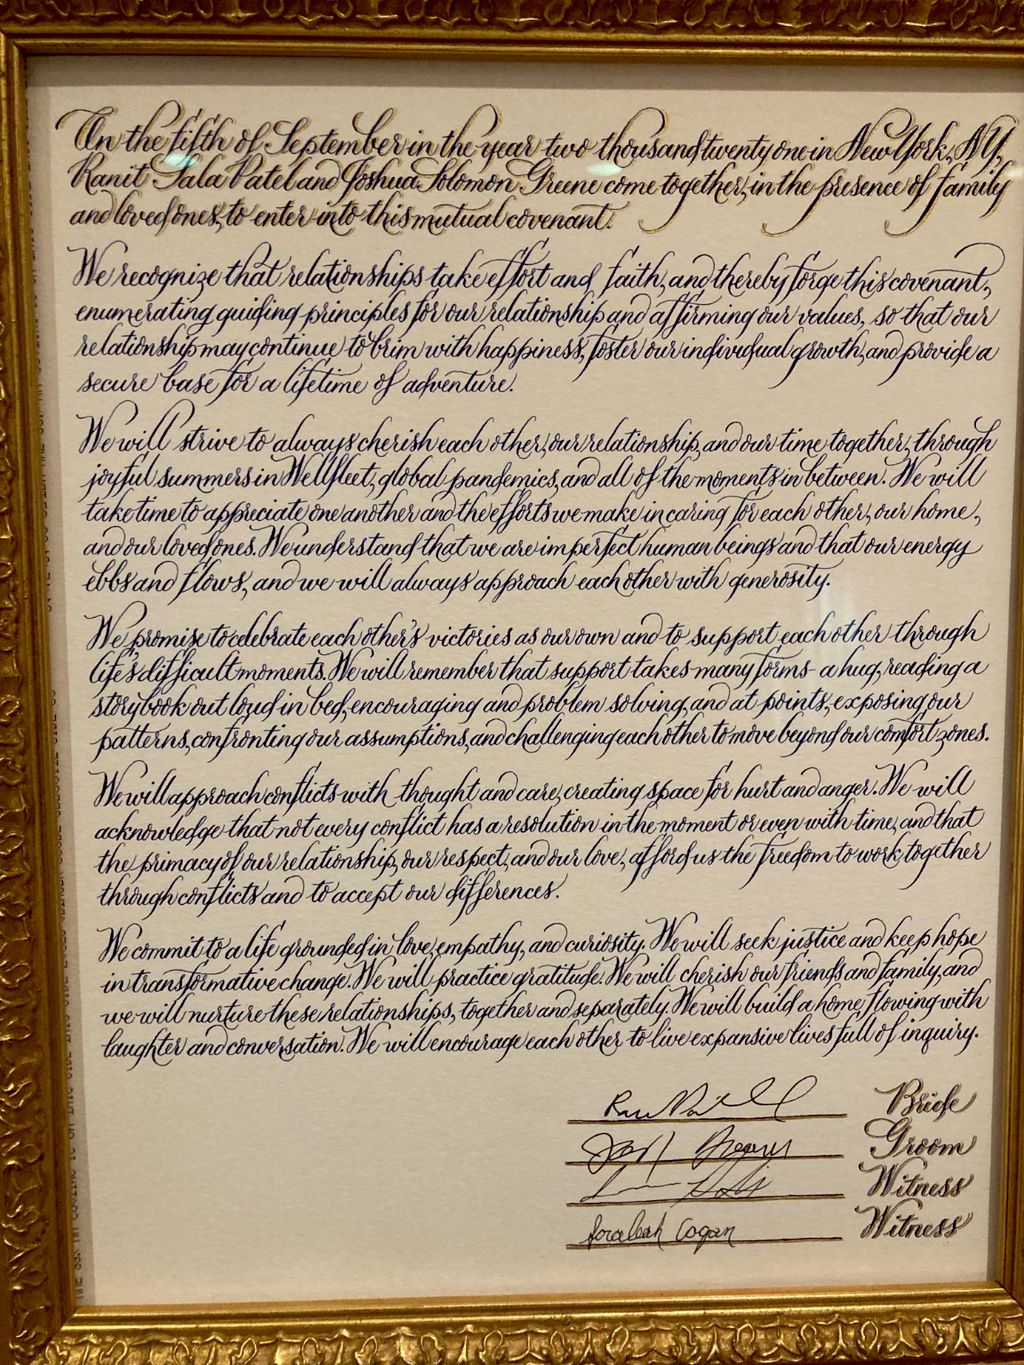 On the fifth of September in the year two thousand twenty one in New York, NY,
Ranit Sala Patel and Joshua Solomon Greene come together, in the presence of family
and loved ones, to enter into this mutual covenant.
We recognize that relationships take effort and faith, and thereby forge this covenant,
enumerating guiding principles for our relationship and affirming our values, so that our
relationship may continue to brim with happiness, foster our individual growth, and provide a
secure base for a lifetime of adventure.
We will strive to always cherish each other, our relationship, and our time together, through
joyful summers in Wellfleet, global pandemics, and all of the moments in between. We will
take time to appreciate one another and the efforts we make in caring for each other, our home,
and our loved ones. We understand that we are imperfect human beings and that our energy
ebbs and flows, and we will always approach each other with generosity.
We promise to celebrate each other's victories as our own and to support each other through
life's difficult moments. We will remember that support takes many forms - a hug, reading a
storybook out loud in bed, encouraging and problem solving, and at points, exposing our
patterns, confronting our assumptions, and challenging each other to move beyond our comfort zones.
We will approach conflicts with thought and care, creating space for hurt and anger. We will
acknowledge that not every conflict has a resolution in the moment or even with time, and that
the primacy of our relationship, our respect, and our love, afford us the freedom to work together
through conflicts and to accept our differences.
We commit to a life grounded in love, empathy, and curiosity. We will seek justice and keep hope
in transformative change. We will practice gratitude. We will cherish our friends and family, and
we will nurture these relationships, together and separately. We will build a home flowing with
laughter and conversation. We will encourage each other to live expansive lives full of inquiry.
Bride
Groom
Witness
Cogan Witness